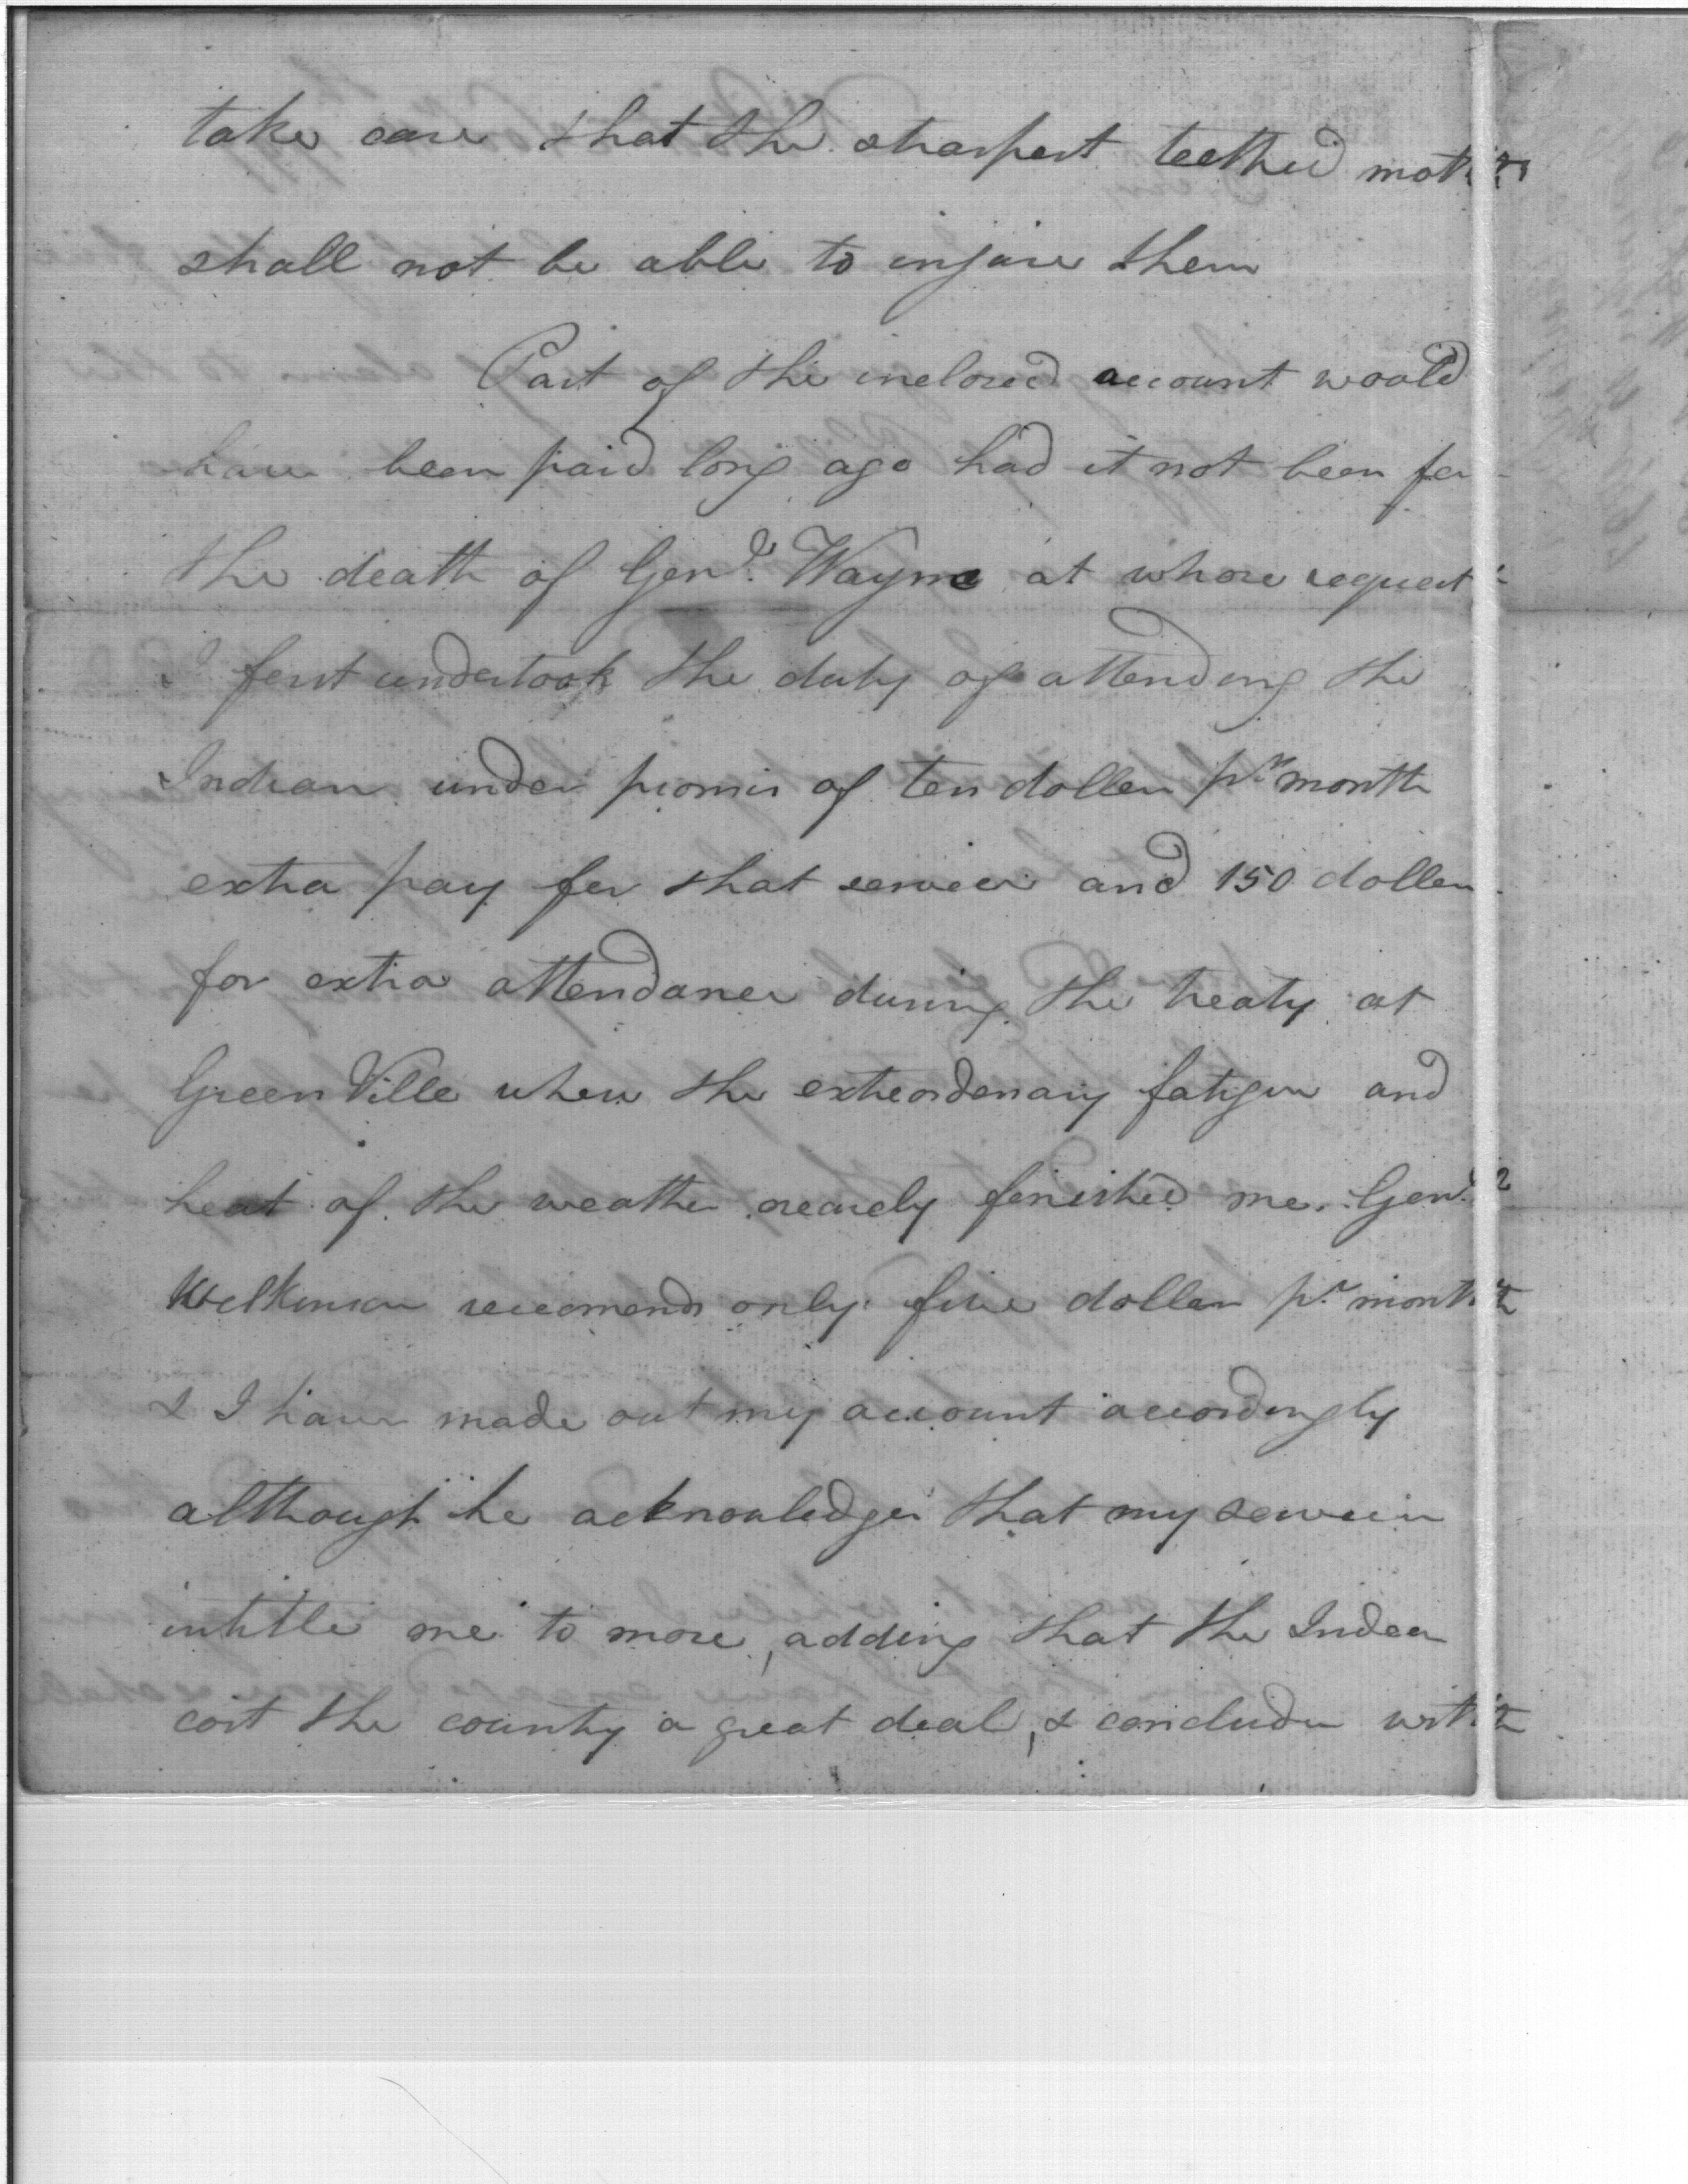 take care that the sharpest teethed moths
shall not be able to injure them
Part of the inclosed account would
have been paid long ago had it not been for
the death of Genl. Wayne at whose request
I first undertook the duty of attending the
Indians under promis of ten dollars pr month
extra pay for that service and 150 dollars
for extra attendance during the treaty at
GreenVille when the extreordenary fatigue and
heat of the weather nearely finished me. Genl.
Wilkinson reccomends only five dollars pr month
& I have made out my account accordingly
although he acknowledges that my services
intitle me to more, adding that the Indians
cost the country a great deal, & concludes with